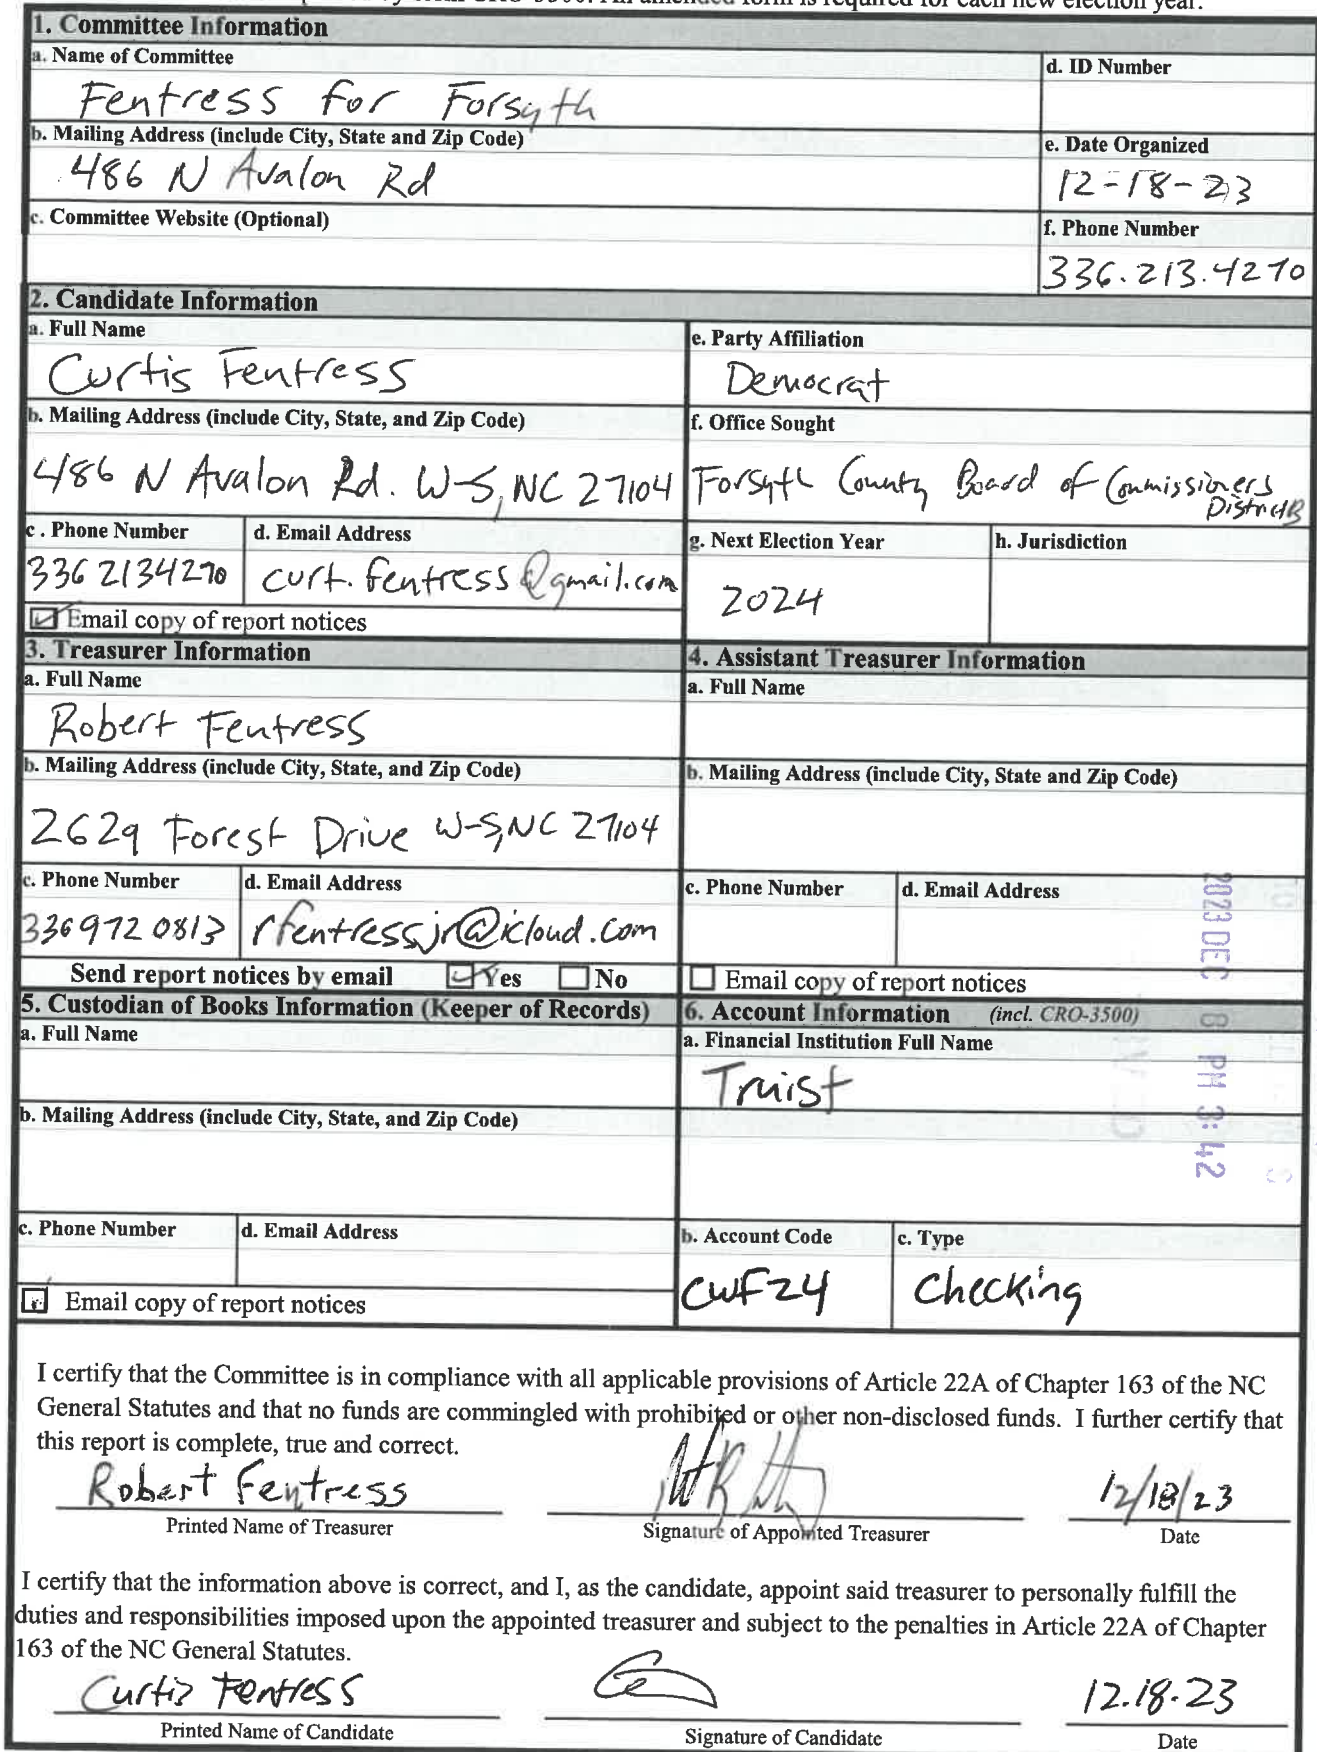 for each new election year.
1. Committee Information
a. Name of Committee
Fentress for Forsyth
d. ID Number
b. Mailing Address (include City, State and Zip Code)
486 N Avalon Rd
e. Date Organized
12-18-23
c. Committee Website (Optional)
f. Phone Number
336.213.4270
2. Candidate Information
a. Full Name
Curtis Fentress
e. Party Affiliation
Democrat
b. Mailing Address (include City, State, and Zip Code)
486 N Avalon Rd. W-S, NC 27104
f. Office Sought
Forsyth County Board of Commissioners
District B
c . Phone Number
336 2134270
d. Email Address
curt.fentress@gmail.com
Email copy of report notices
g. Next Election Year
2024
h. Jurisdiction
3. Treasurer Information
a. Full Name
Robert Fentress
b. Mailing Address (include City, State, and Zip Code)
2629 Forest Drive W-S, NC 27104
c. Phone Number
336 972 0813
d. Email Address
rfentressjr@icloud.com
Send report notices by email Yes No
4. Assistant Treasurer Information
a. Full Name
b. Mailing Address (include City, State and Zip Code)
c. Phone Number
d. Email Address
Email copy of report notices
2023 DEC PM 3:42
5. Custodian of Books Information (Keeper of Records)
a. Full Name
b. Mailing Address (include City, State, and Zip Code)
c. Phone Number
d. Email Address
Email copy of report notices
6. Account Information (incl. CRO-3500)
a. Financial Institution Full Name
Truist
b. Account Code
CWF24
c. Type
Checking
I certify that the Committee is in compliance with all applicable provisions of Article 22A of Chapter 163 of the NC
General Statutes and that no funds are commingled with prohibited or other non-disclosed funds. I further certify that
this report is complete, true and correct.
Robert Fentress
12/18/23
Printed Name of Treasurer
Signature of Appointed Treasurer
Date
I certify that the information above is correct, and I, as the candidate, appoint said treasurer to personally fulfill the
duties and responsibilities imposed upon the appointed treasurer and subject to the penalties in Article 22A of Chapter
163 of the NC General Statutes.
Curtis Fentress
12.18.23
Printed Name of Candidate
Signature of Candidate
Date